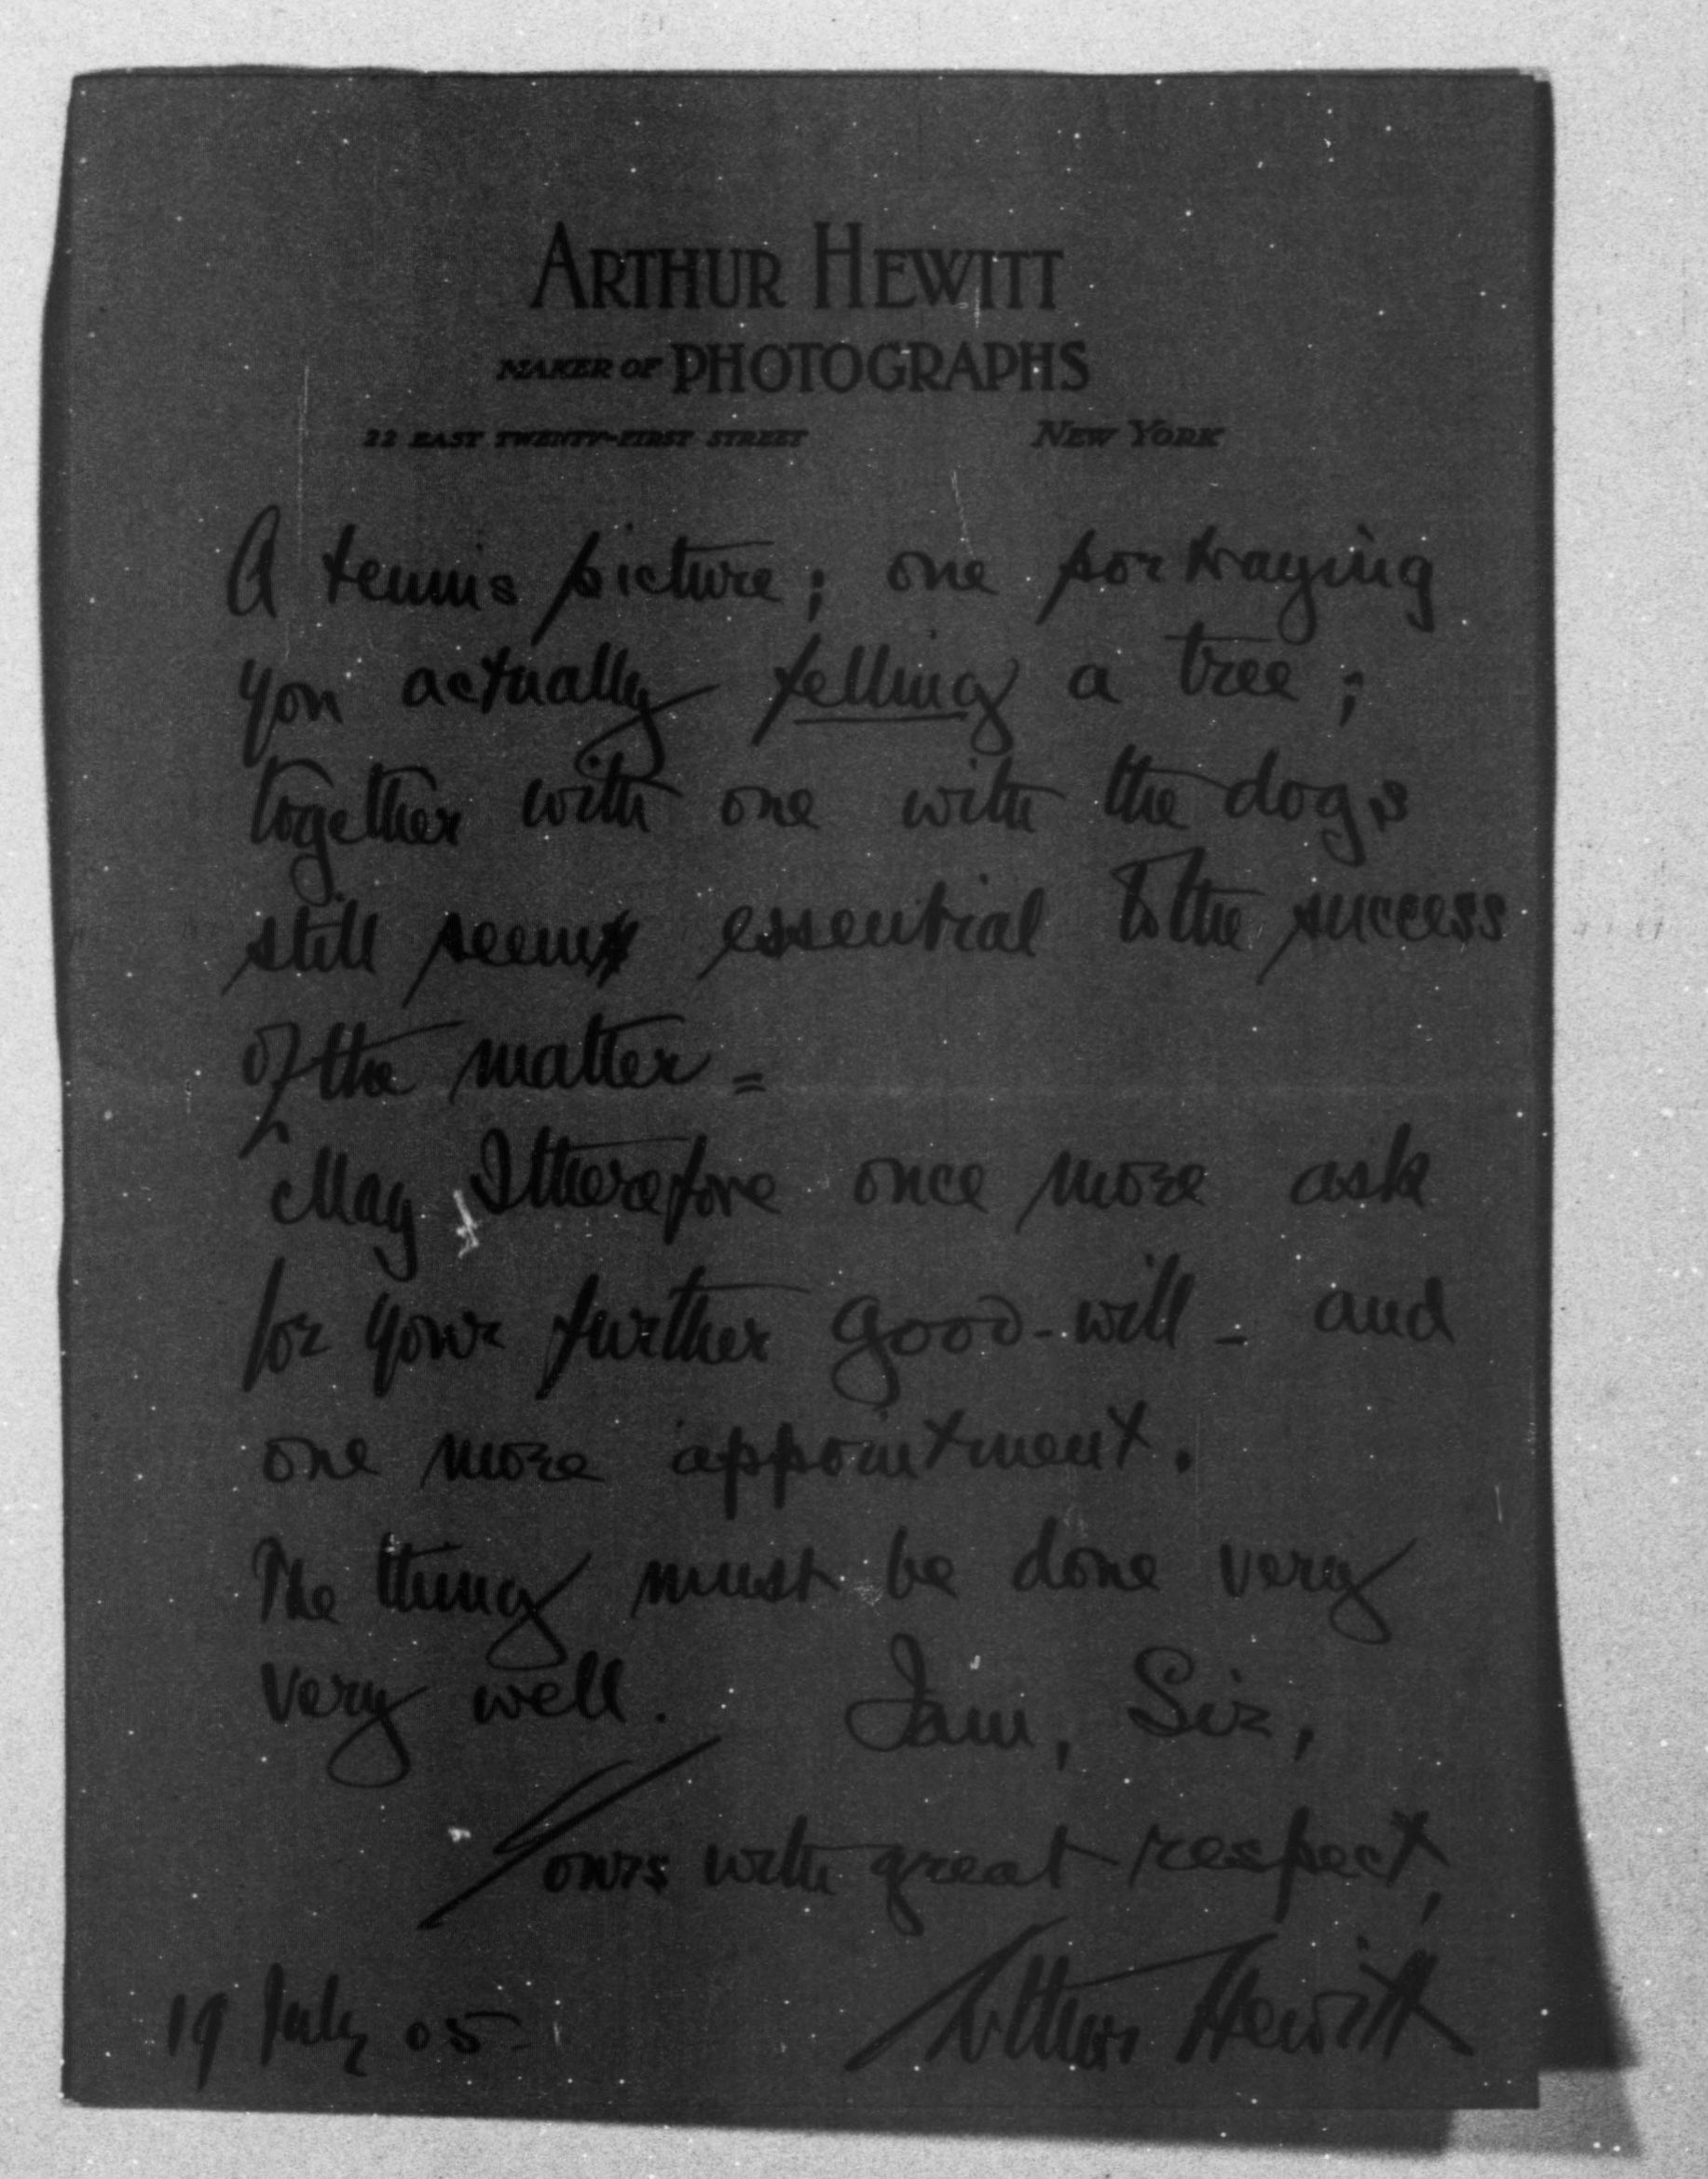 ARTHUR HEWITT
MAKER OF PHOTOGRAPHS
22 EAST TWENTY-FIRST STREET NEW YORK
A tennis picture; one portraying
you actually felling a tree;
together with one with the dogs
still seem essential to the success
of the matter =
May I therefore once more ask
for your further good-will - and
one more appointment.
The thing must be done very
very well. I am, Sir,
Yours with great respect,
Arthur Hewitt
19 July 05